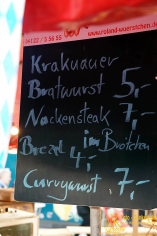 04122 / 5 56 55
www.roland-wuerstchen.de
Krakauer
Bratwurst 5,-
Nackensteak 7,-
Brezel 4,- im Brötchen
Currywurst 7,-